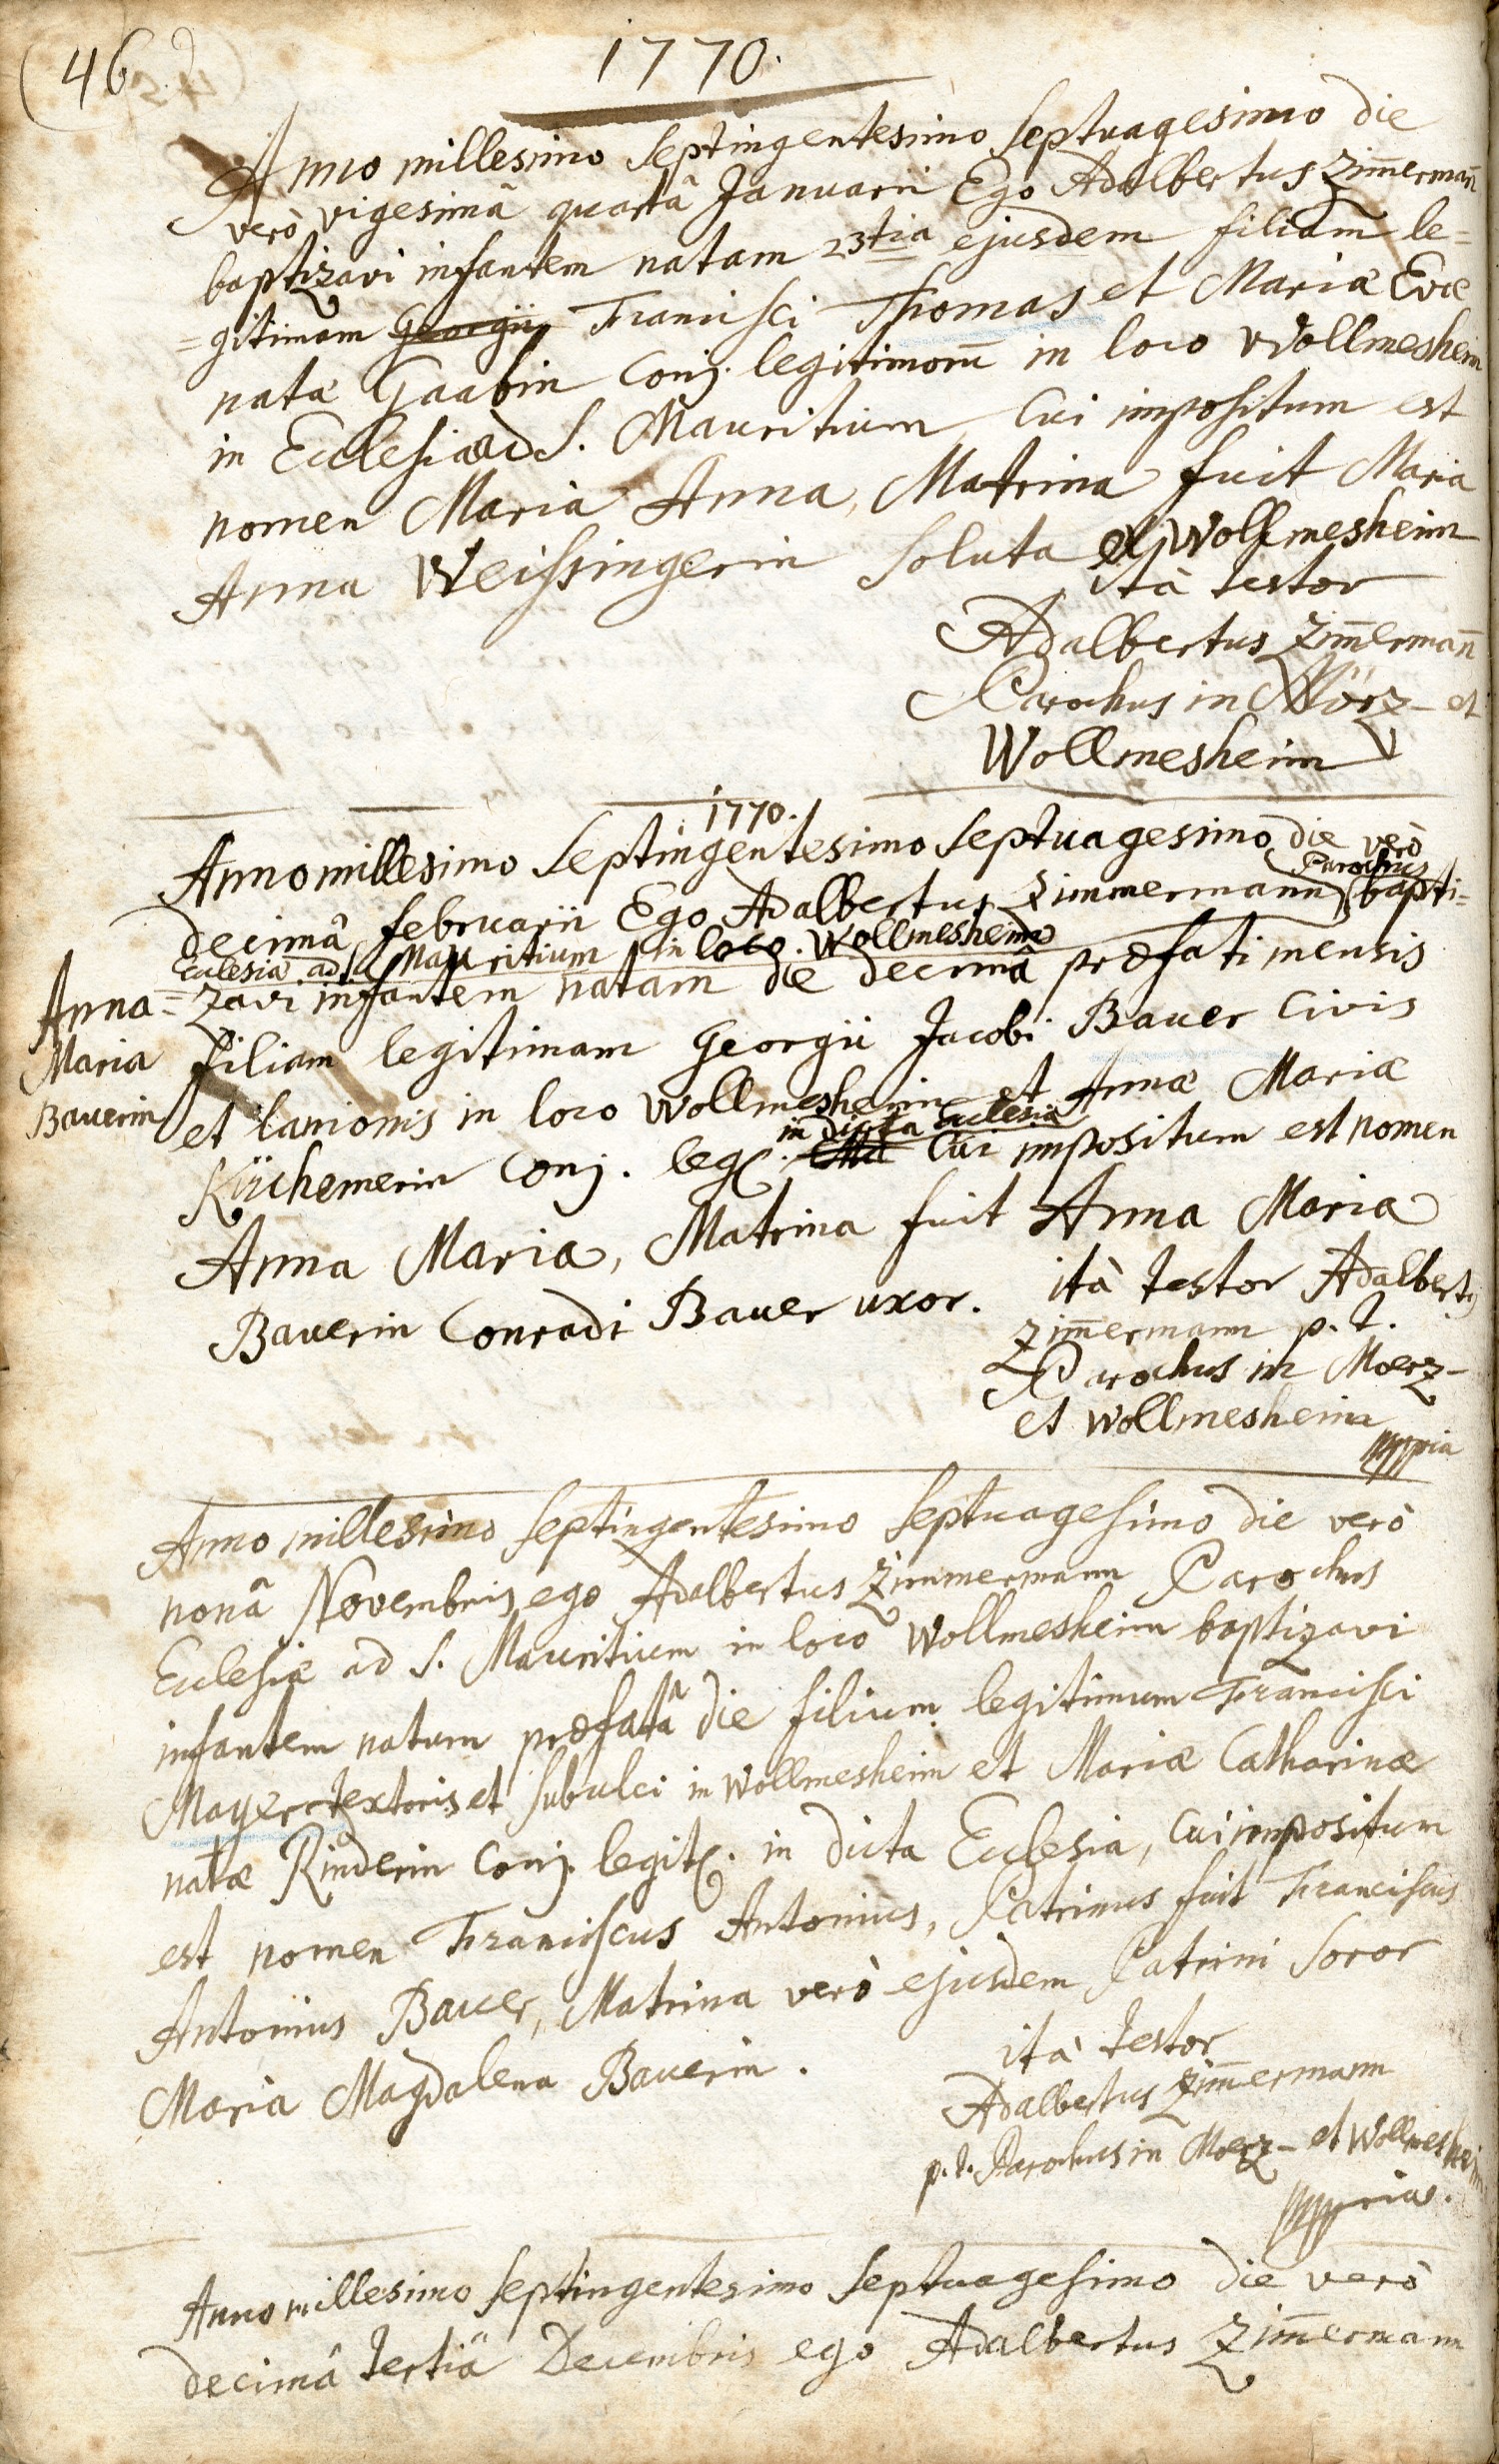 46
1770.
Anno millesimo Septingentesimo Septuagesimo die
verò vigesimâ quartâ Januarii Ego Adalbertus Zim̄erman̄
baptizavi infantem natam 23tia ejusdem filiam le=
=gitimam Georgii Francisci Thomas et Mariæ Evæ
natæ Gaabin Conj. legitimorū in loco Wollmesheim
in Ecclesia ad S. Mauritium Cui impositum est
nomen Maria Anna, Matrina fuit Maria
Anna Weissingerin Soluta ex Wollmesheim
ità testor
Adalbertus Zim̄erman̄
Parochus in Mörz- et
Wollmesheim
1770.
Anno millesimo Septingentesimo Septuagesimo die verò
decimâ februarii Ego Adalbertus Zimmermann Parochus bapti=
Ecclesia ad S. Mauritium in loco. Wollmesheim
=zavi infantem natam die decimâ præfati mensis
Anna
Maria
Bauerin
filiam legitimam Georgii Jacobi Bauer Civis
et lanionis in loco Wollmesheim et Annæ Mariæ
Küchemerin Conj. leg. in dicta Ecclesia Cui impositum est nomen
Anna Maria, Matrina fuit Anna Maria
Bauerin Conradi Bauer uxor.
ità testor Adalbertus
Zim̄ermann p. t.
Parochus in Moerz-
et Wollmesheim
mppria
Anno millesimo Septingentesimo Septuagesimo die verò
nonâ Novembris ego Adalbertus Zimmermann Parochus
Ecclesiæ ad S. Mauritium in loco Wollmesheim baptizavi
infantem natum præfatâ die filium legitimum Francisci
Mayer textoris et subulci in Wollmesheim et Mariæ Catharinæ
natæ Rinderin Conj. legit. in dicta Ecclesia, Cui impositum
est nomen Franciscus Antonius, Patrinus fuit Franciscus
Antonius Bauer, Matrina verò ejusdem Patrini Soror
Maria Magdalena Bauerin.
ità testor
Adalbertus Zim̄ermann
p. t. Parochus in Moerz- et Wollmesheim
mppria.
Anno millesimo Septingentesimo Septuagesimo die verò
decimâ tertiâ Decembris ego Adalbertus Zim̄ermann